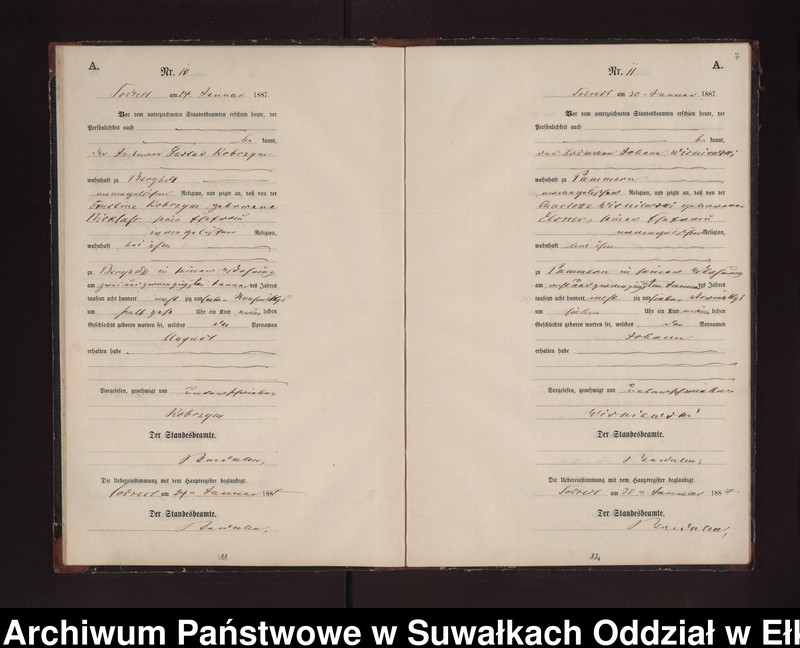 A.
Nr. 10
am 24 Januar 1887.
Vor dem unterzeichneten Standesbeamten erschien heute, der
Persönlichkeit nach
be kannt,
der Gustav Kobrzyn
wohnhaft zu
evangelischer Religion, und zeigte an, daß von der
Ernestine Kobrzyn geborenen
seine Ehefrau
evangelischer Religion,
wohnhaft bei ihm
zu in seiner Wohnung
am zwei und zwanzigsten Januar des Jahres
tausend acht hundert acht zig und sieben Nachmittags
um halb Uhr ein Kind männ lichen
Geschlechts geboren worden sei, welches den Vornamen
August
erhalten habe.
Vorgelesen, genehmigt und unterschrieben
Kobrzyn
Der Standesbeamte.
Die Uebereinstimmung mit dem Hauptregister beglaubigt.
am 24 Januar 1887
Der Standesbeamte.
11
A.
Nr. 11
am 30. Januar 1887.
Vor dem unterzeichneten Standesbeamten erschien heute, der
Persönlichkeit nach
be kannt,
der Johann Wisniewski
wohnhaft zu Pammern
evangelischer Religion, und zeigte an, daß von der
Charlotte Wisniewski geborenen
seiner Ehefrau
evangelischer Religion,
wohnhaft bei ihm
zu Pammern in seiner Wohnung
am Januar des Jahres
tausend acht hundert acht zig und sieben
um sieben Uhr ein Kind männ lichen
Geschlechts geboren worden sei, welches den Vornamen
Johann
erhalten habe
Vorgelesen, genehmigt und unterschrieben
Wisniewski
Der Standesbeamte.
Die Uebereinstimmung mit dem Hauptregister beglaubigt.
am 30 Januar 1887
Der Standesbeamte.
12
Archiwum Państwowe w Suwałkach Oddział w Ełk